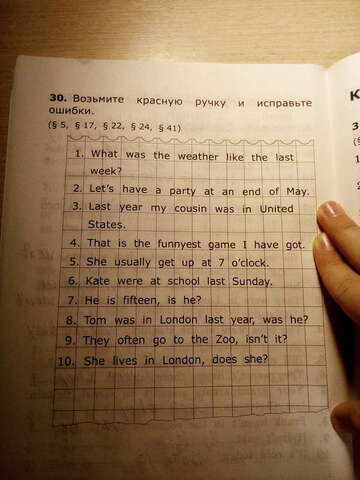 30. Возьмите красную ручку и исправьте
ошибки.
(§ 5, § 17, § 22, § 24, § 41)
1. What was the weather like the last
week?
2. Let's have a party at an end of May.
3. Last year my cousin was in United
States.
4. That is the funnyest game I have got.
5. She usually get up at 7 o'clock.
6. Kate were at school last Sunday.
7. He is fifteen, is he?
8. Tom was in London last year, was he?
9. They often go to the Zoo, isn't it?
10. She lives in London, does she?
К
3